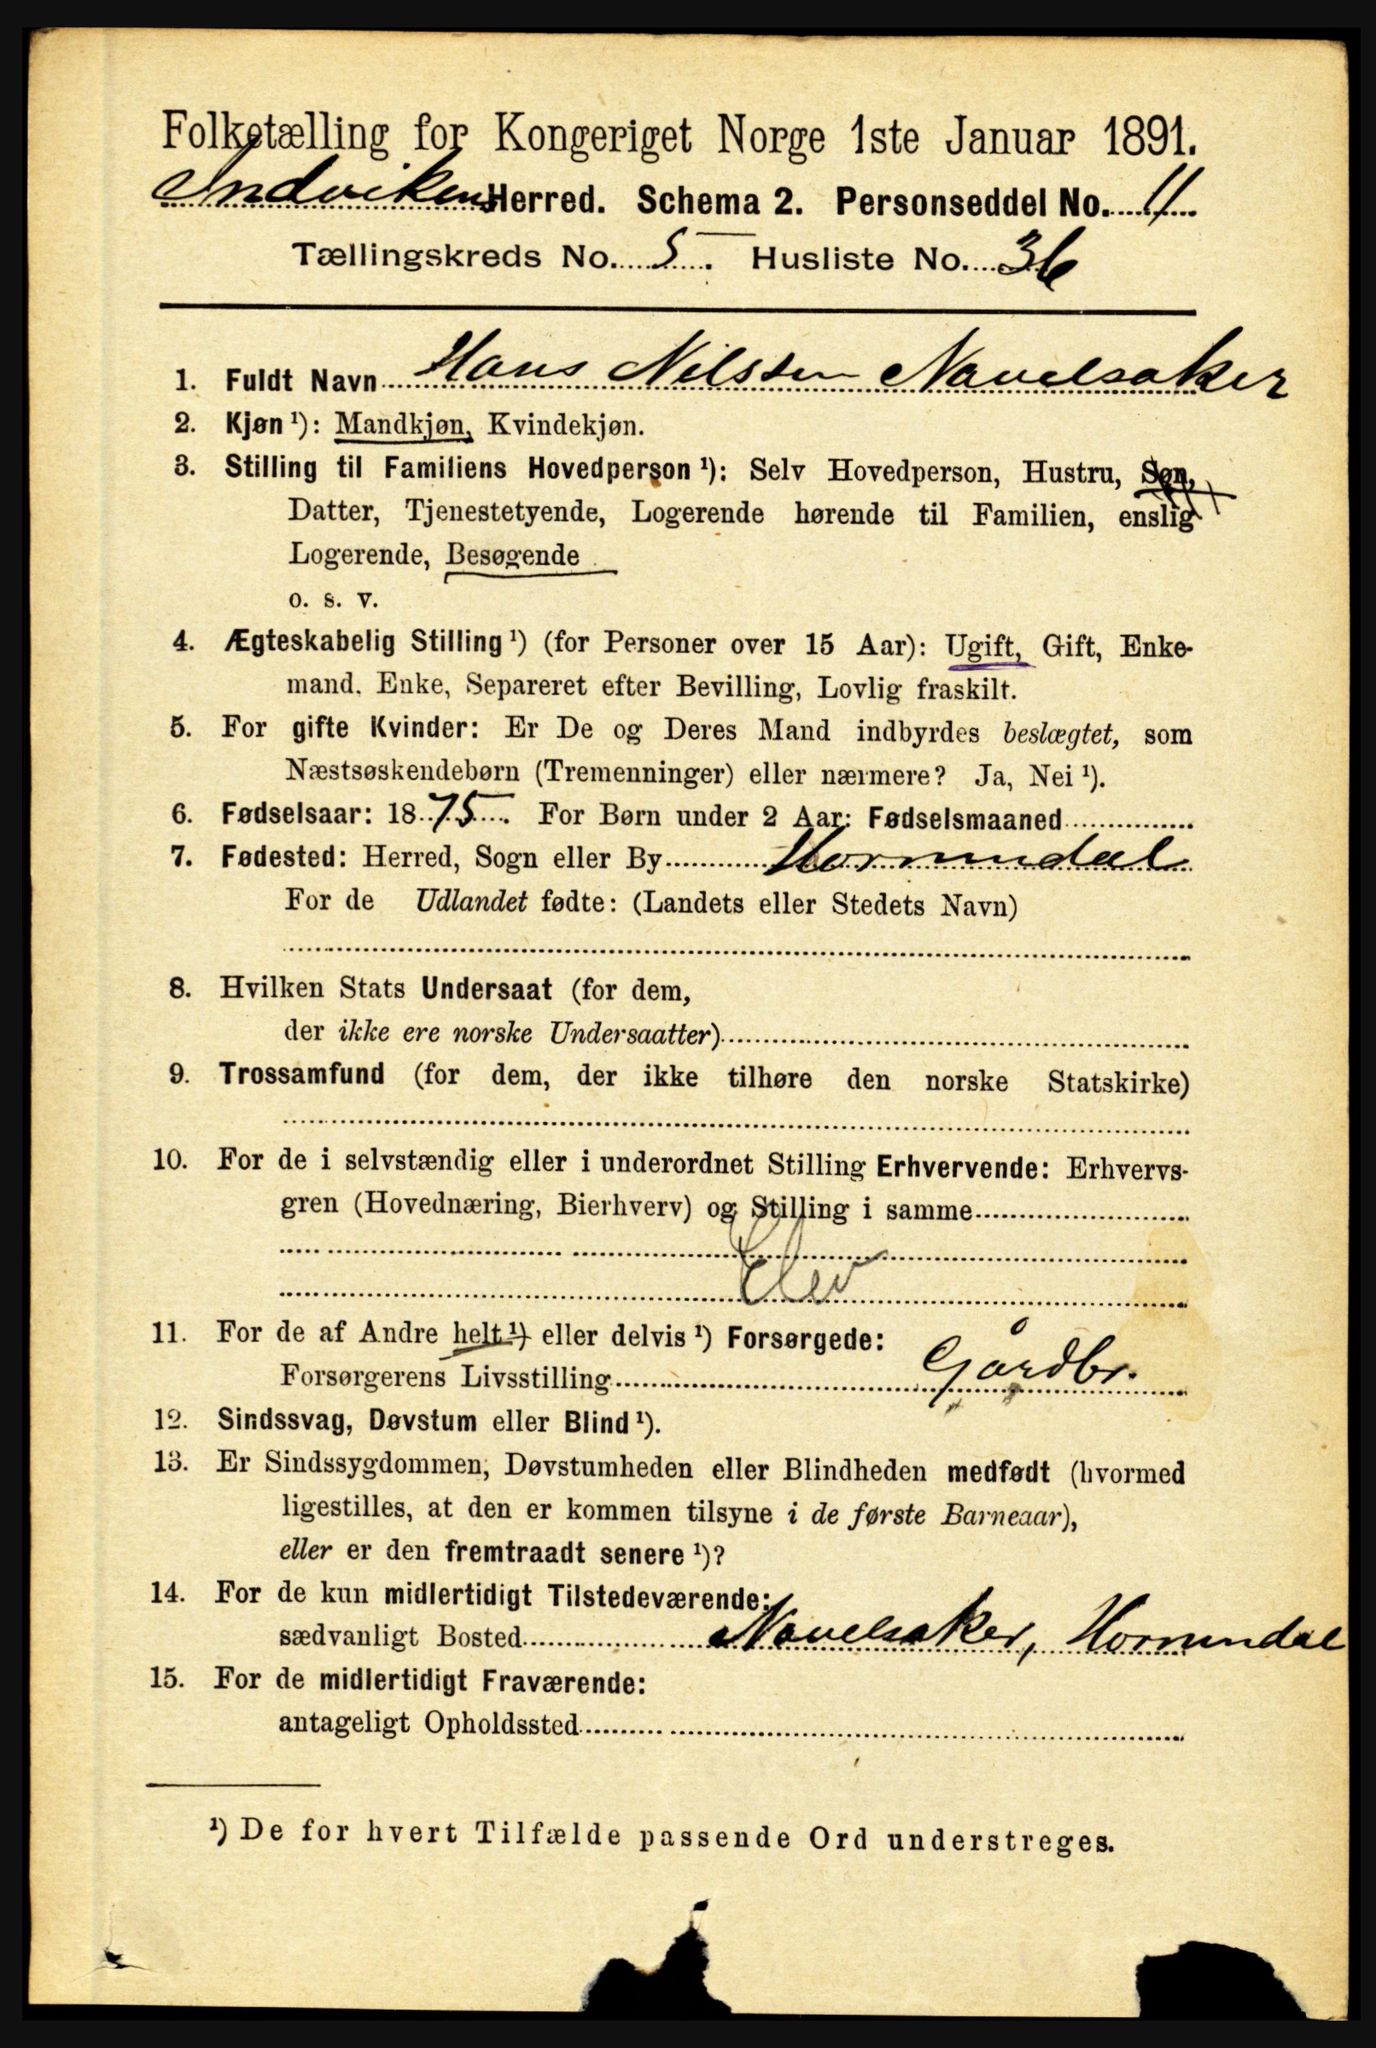 Folketælling for Kongeriget Norge 1ste Januar 1891.
Indvikens Herred. Schema 2. Personseddel No. 11
Tællingskreds No. 5. Husliste No. 36
1. Fuldt Navn Hans Nilsen Navelsaker
2. Kjøn ¹): Mandkjøn, Kvindekjøn.
3. Stilling til Familiens Hovedperson ¹): Selv Hovedperson, Hustru, Søn,
Datter, Tjenestetyende, Logerende hørende til Familien, enslig
Logerende, Besøgende
o. s. v.
4. Ægteskabelig Stilling ¹) (for Personer over 15 Aar): Ugift, Gift, Enke-
mand, Enke, Separeret efter Bevilling, Lovlig fraskilt.
5. For gifte Kvinder: Er De og Deres Mand indbyrdes beslægtet, som
Næstsøskendebørn (Tremenninger) eller nærmere? Ja, Nei ¹).
6. Fødselsaar: 1875. For Børn under 2 Aar: Fødselsmaaned
7. Fødested: Herred, Sogn eller By Hornindal
For de Udlandet fødte: (Landets eller Stedets Navn)
8. Hvilken Stats Undersaat (for dem,
der ikke ere norske Undersaatter)
9. Trossamfund (for dem, der ikke tilhøre den norske Statskirke)
10. For de i selvstændig eller i underordnet Stilling Erhvervende: Erhvervs-
gren (Hovednæring, Bierhverv) og Stilling i samme
Elev
11. For de af Andre helt ¹) eller delvis ¹) Forsørgede:
Forsørgerens Livsstilling Gårdbr.
12. Sindssvag, Døvstum eller Blind ¹).
13. Er Sindssygdommen, Døvstumheden eller Blindheden medfødt (hvormed
ligestilles, at den er kommen tilsyne i de første Barneaar),
eller er den fremtraadt senere ¹)?
14. For de kun midlertidigt Tilstedeværende:
sædvanligt Bosted Navelsaker, Hornindal
15. For de midlertidigt Fraværende:
antageligt Opholdssted
¹) De for hvert Tilfælde passende Ord understreges.